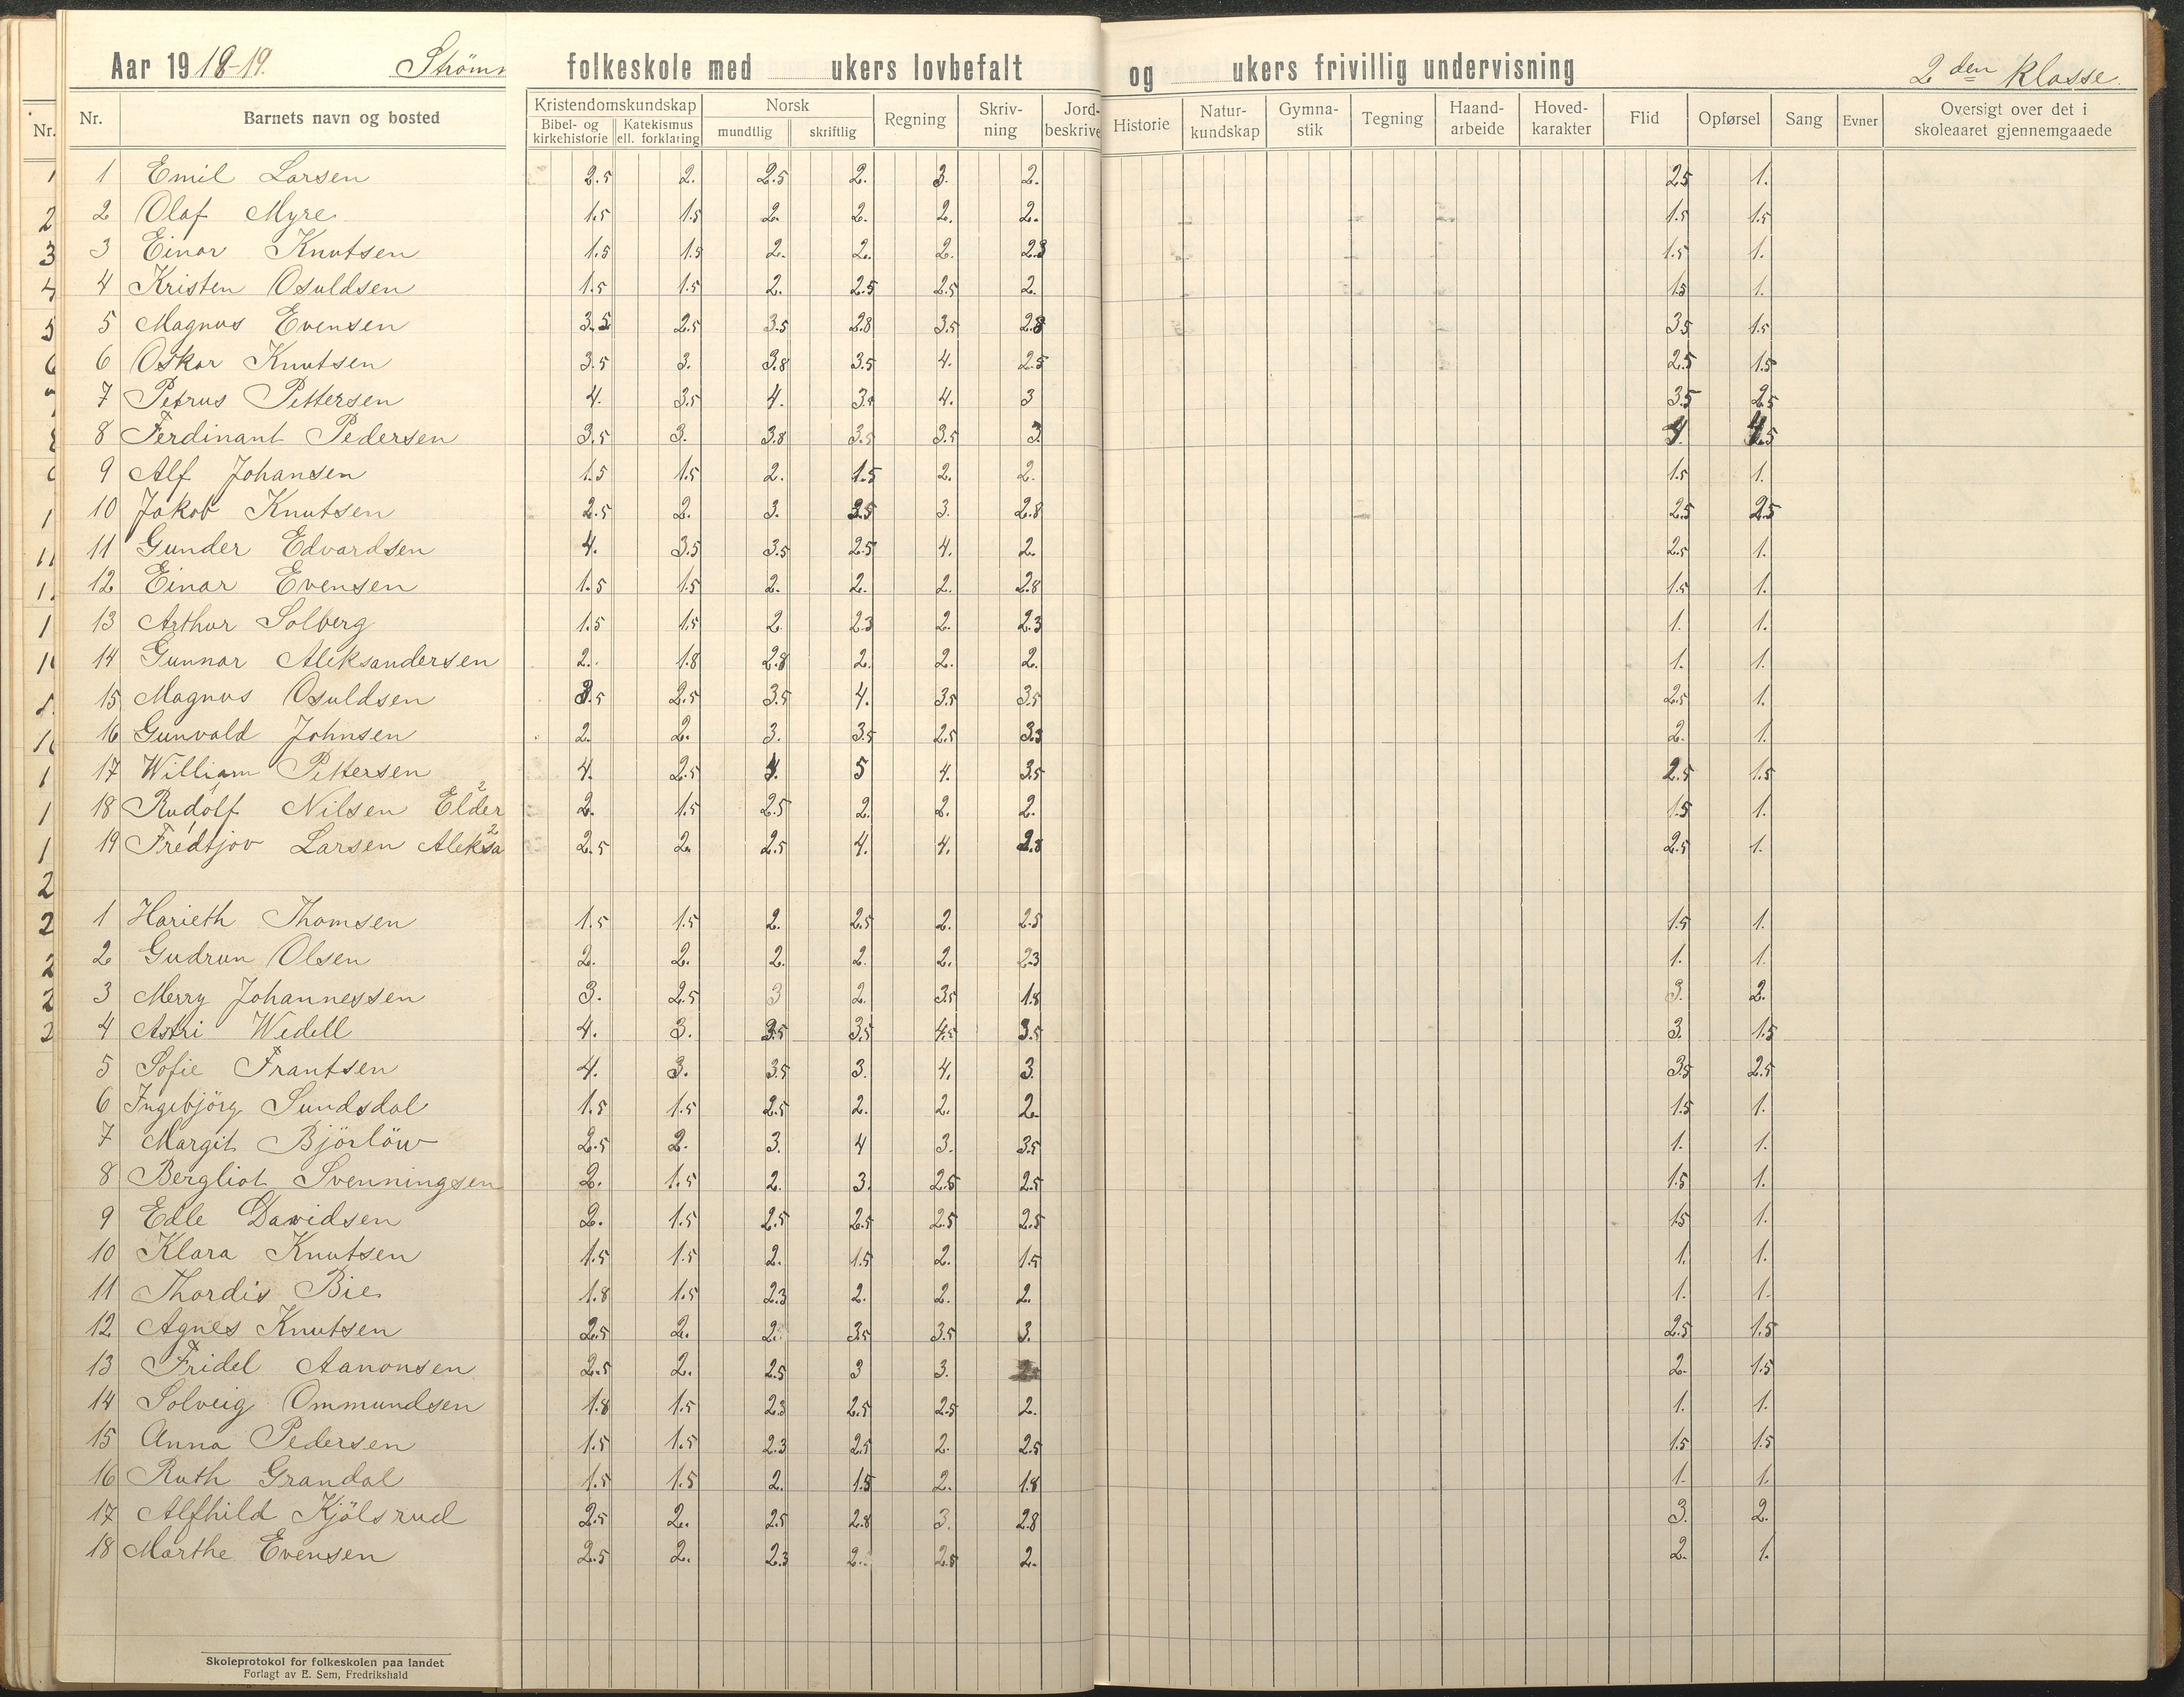 Aar 1918-19. Strøm folkeskole med ukers lovbefalt og ukers frivillig undervisning 2 den klasse.
Nr. Nr. Barnets navn og bosted Kristendomskundskap Bibel- og kirkehistorie Katekismus ell. forklaring Norsk mundtlig skriftlig Regning Skriv-ning Jord-beskrive Historie Natur-kundskap Gymna-stik Tegning Haand-arbeide Hoved-karakter Flid Opførsel Sang Evner Oversigt over det i skoleaaret gjennemgaaede
1 Emil Larsen 2.5 2. 2.5 2. 3. 2. 2.5 1.
2 Olaf Myre 1.5 1.5 2. 2. 2. 2. 1.5 1.5
3 Einar Knutsen 1.5 1.5 2. 2. 2. 2.3 1.5 1.
4 Kristen Osuldsen 1.5 1.5 2. 2.5 2.5 2. 1.5 1.
5 Magnus Evensen 3.5 2.5 3.5 2.8 3.5 2.8 3.5 1.5
6 Oskar Knutsen 3.5 3. 3.8 3.5 4. 2.5 2.5 1.5
7 Petrus Pettersen 4. 3.5 4. 3.5 4. 3 3.5 2.5
8 Ferdinant Pedersen 3.5 3. 3.8 3.5 3.5 3.
9 Alf Johansen 1.5 1.5 2. 1.5 2. 2. 1.5 1.
10 Jakob Knutsen 2.5 2. 3. 2.5 3. 2.8 2.5 2.5
11 Gunder Edvardsen 4. 3.5 3.5 2.5 4. 2. 2.5 1.
12 Einar Evensen 1.5 1.5 2. 2. 2. 2.8 1.5 1.
13 Arthur Solberg 1.5 1.5 2 2.3 2. 2.3 1. 1.
14 Gunnar Aleksandersen 2. 1.8 2.8 2. 2. 2. 1. 1.
15 Magnus Osuldsen 3.5 2.5 3.5 4. 3.5 3.5 2.5 1.
16 Gunvald Johnsen 2. 2. 3. 3.5 2.5 3.3 2. 1.
17 William Pettersen 4. 2.5 4. 5 4. 3.5 2.5 1.5
18 Rudolf Nilsen Elder 2. 1.5 2.5 2. 2. 2. 1.5 1.
19 Fredtjov Larsen Aleksa 2.5 2. 2.5 4. 4. 2.8 2.5 1.
1 Harieth Thomsen 1.5 1.5 2. 2.5 2. 2.5 1.5 1.
2 Gudrun Olsen 2. 2. 2. 2. 2. 2.3 1. 1.
3 Merry Johannessen 3. 2.5 3 2. 3.5 1.8 3. 2.
4 Astri Wedell 4. 3. 3.5 3.5 4.5 3.5 3. 1.5
5 Sofie Frantsen 4. 3. 3.5 3. 4. 3. 3.5 2.5
6 Ingebjörg Sundsdal 1.5 1.5 2.5 2. 2. 2. 1.5 1.
7 Margit Björlöw 2.5 2. 3. 4 3. 3.5 1. 1.
8 Bergliot Svenningsen 2. 1.5 2. 3. 2.5 2.5 1.5 1.
9 Edle Davidsen 2. 1.5 2.5 2.5 2.5 2.5 1.5 1.
10 Klara Knutsen 1.5 1.5 2. 1.5 2. 1.5 1. 1.
11 Thordis Bie 1.8 1.5 2.3 2. 2. 2. 1. 1.
12 Agnes Knutsen 2.5 2. 2. 3.5 3.5 3. 2.5 1.5
13 Fridel Aanonsen 2.5 2. 2.5 3 3. 2. 1.5
14 Solveig Ommundsen 1.8 1.5 2.3 2.5 2.5 2. 1. 1.
15 Anna Pedersen 1.5 1.5 2.3 2.5 2. 2.5 1.5 1.5
16 Ruth Grandal 1.5 1.5 2. 1.5 2. 1.8 1. 1.
17 Alfhild Kjölsrud 2.5 2. 2.5 2.8 3. 2.8 3. 2.
18 Marthe Evensen 2.5 2. 2.3 2. 2.5 2. 2. 1.
Skoleprotokol for folkeskolen paa landet
Forlagt av E. Sem, Fredrikshald